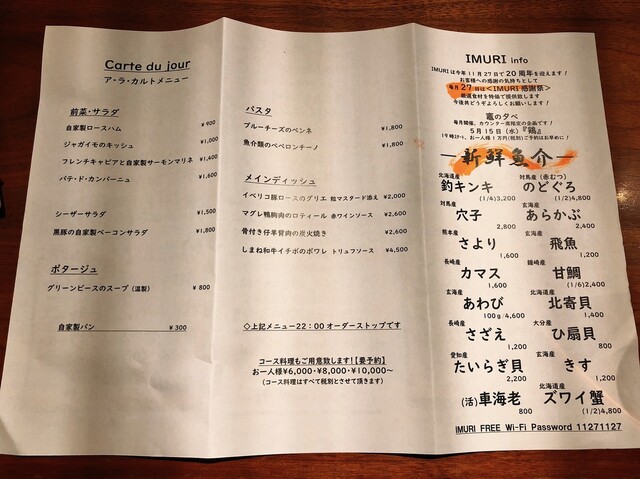 Carte du jour
ア・ラ・カルトメニュー
前菜・サラダ
自家製ロースハム ¥900
ジャガイモのキッシュ ¥1,000
フレンチキャビアと自家製サーモンマリネ ¥1,400
パテ・ド・カンパーニュ ¥1,600
シーザーサラダ ¥1,500
黒豚の自家製ベーコンサラダ ¥1,800
ポタージュ
グリーンピースのスープ (温製) ¥ 800
自家製パン ¥ 300
パスタ
ブルーチーズのペンネ ¥1,800
魚介類のペペロンチーノ ¥1,800
メインディッシュ
イベリコ豚ロースのグリエ 粒マスタード添え ¥2,000
マグレ鴨胸肉のロティール 赤ワインソース ¥2,600
骨付き仔羊背肉の炭火焼き ¥2,600
しまね和牛イチボのポワレ トリュフソース ¥4,500
◇上記メニュー22:00オーダーストップです
コース料理もご用意致します!【要予約】
お一人様¥6,000・¥8,000・¥10,000~
(コース料理はすべて税別とさせて頂きます)
IMURI info
IMURIは今年11月27日で20周年を迎えます!
お客様への感謝の気持ちとして
毎月27日は<IMURI感謝祭>
厳選食材を特価で提供致します
今後共どうぞよろしくお願いします!
竈の夕べ
毎月開催、カウンター席限定の企画です!
5月15日(水)『鶏』
19時スタート、お一人様1万円(税別)ご予約はお早めに!
―新鮮魚介―
北海道産 対馬産(赤むつ)
釣キンキ のどぐろ
(1/4)3,200 (1/2)4,800
対馬産 玄海産
穴子 あらかぶ
2,800 2,400
熊本産 玄海産
さより 飛魚
1,600 1,200
長崎産 鐘崎産
カマス 甘鯛
1,600 (1/6)2,400
玄海産 北海道産
あわび 北寄貝
100g/4,600 1,400
長崎産 大分産
さざえ ひ扇貝
1,200 800
愛知産 玄海産
たいらぎ貝 きす
2,200 1,200
北海道産
(活)車海老 ズワイ蟹
800 (1/2)4,800
IMURI FREE Wi-Fi Password 11271127